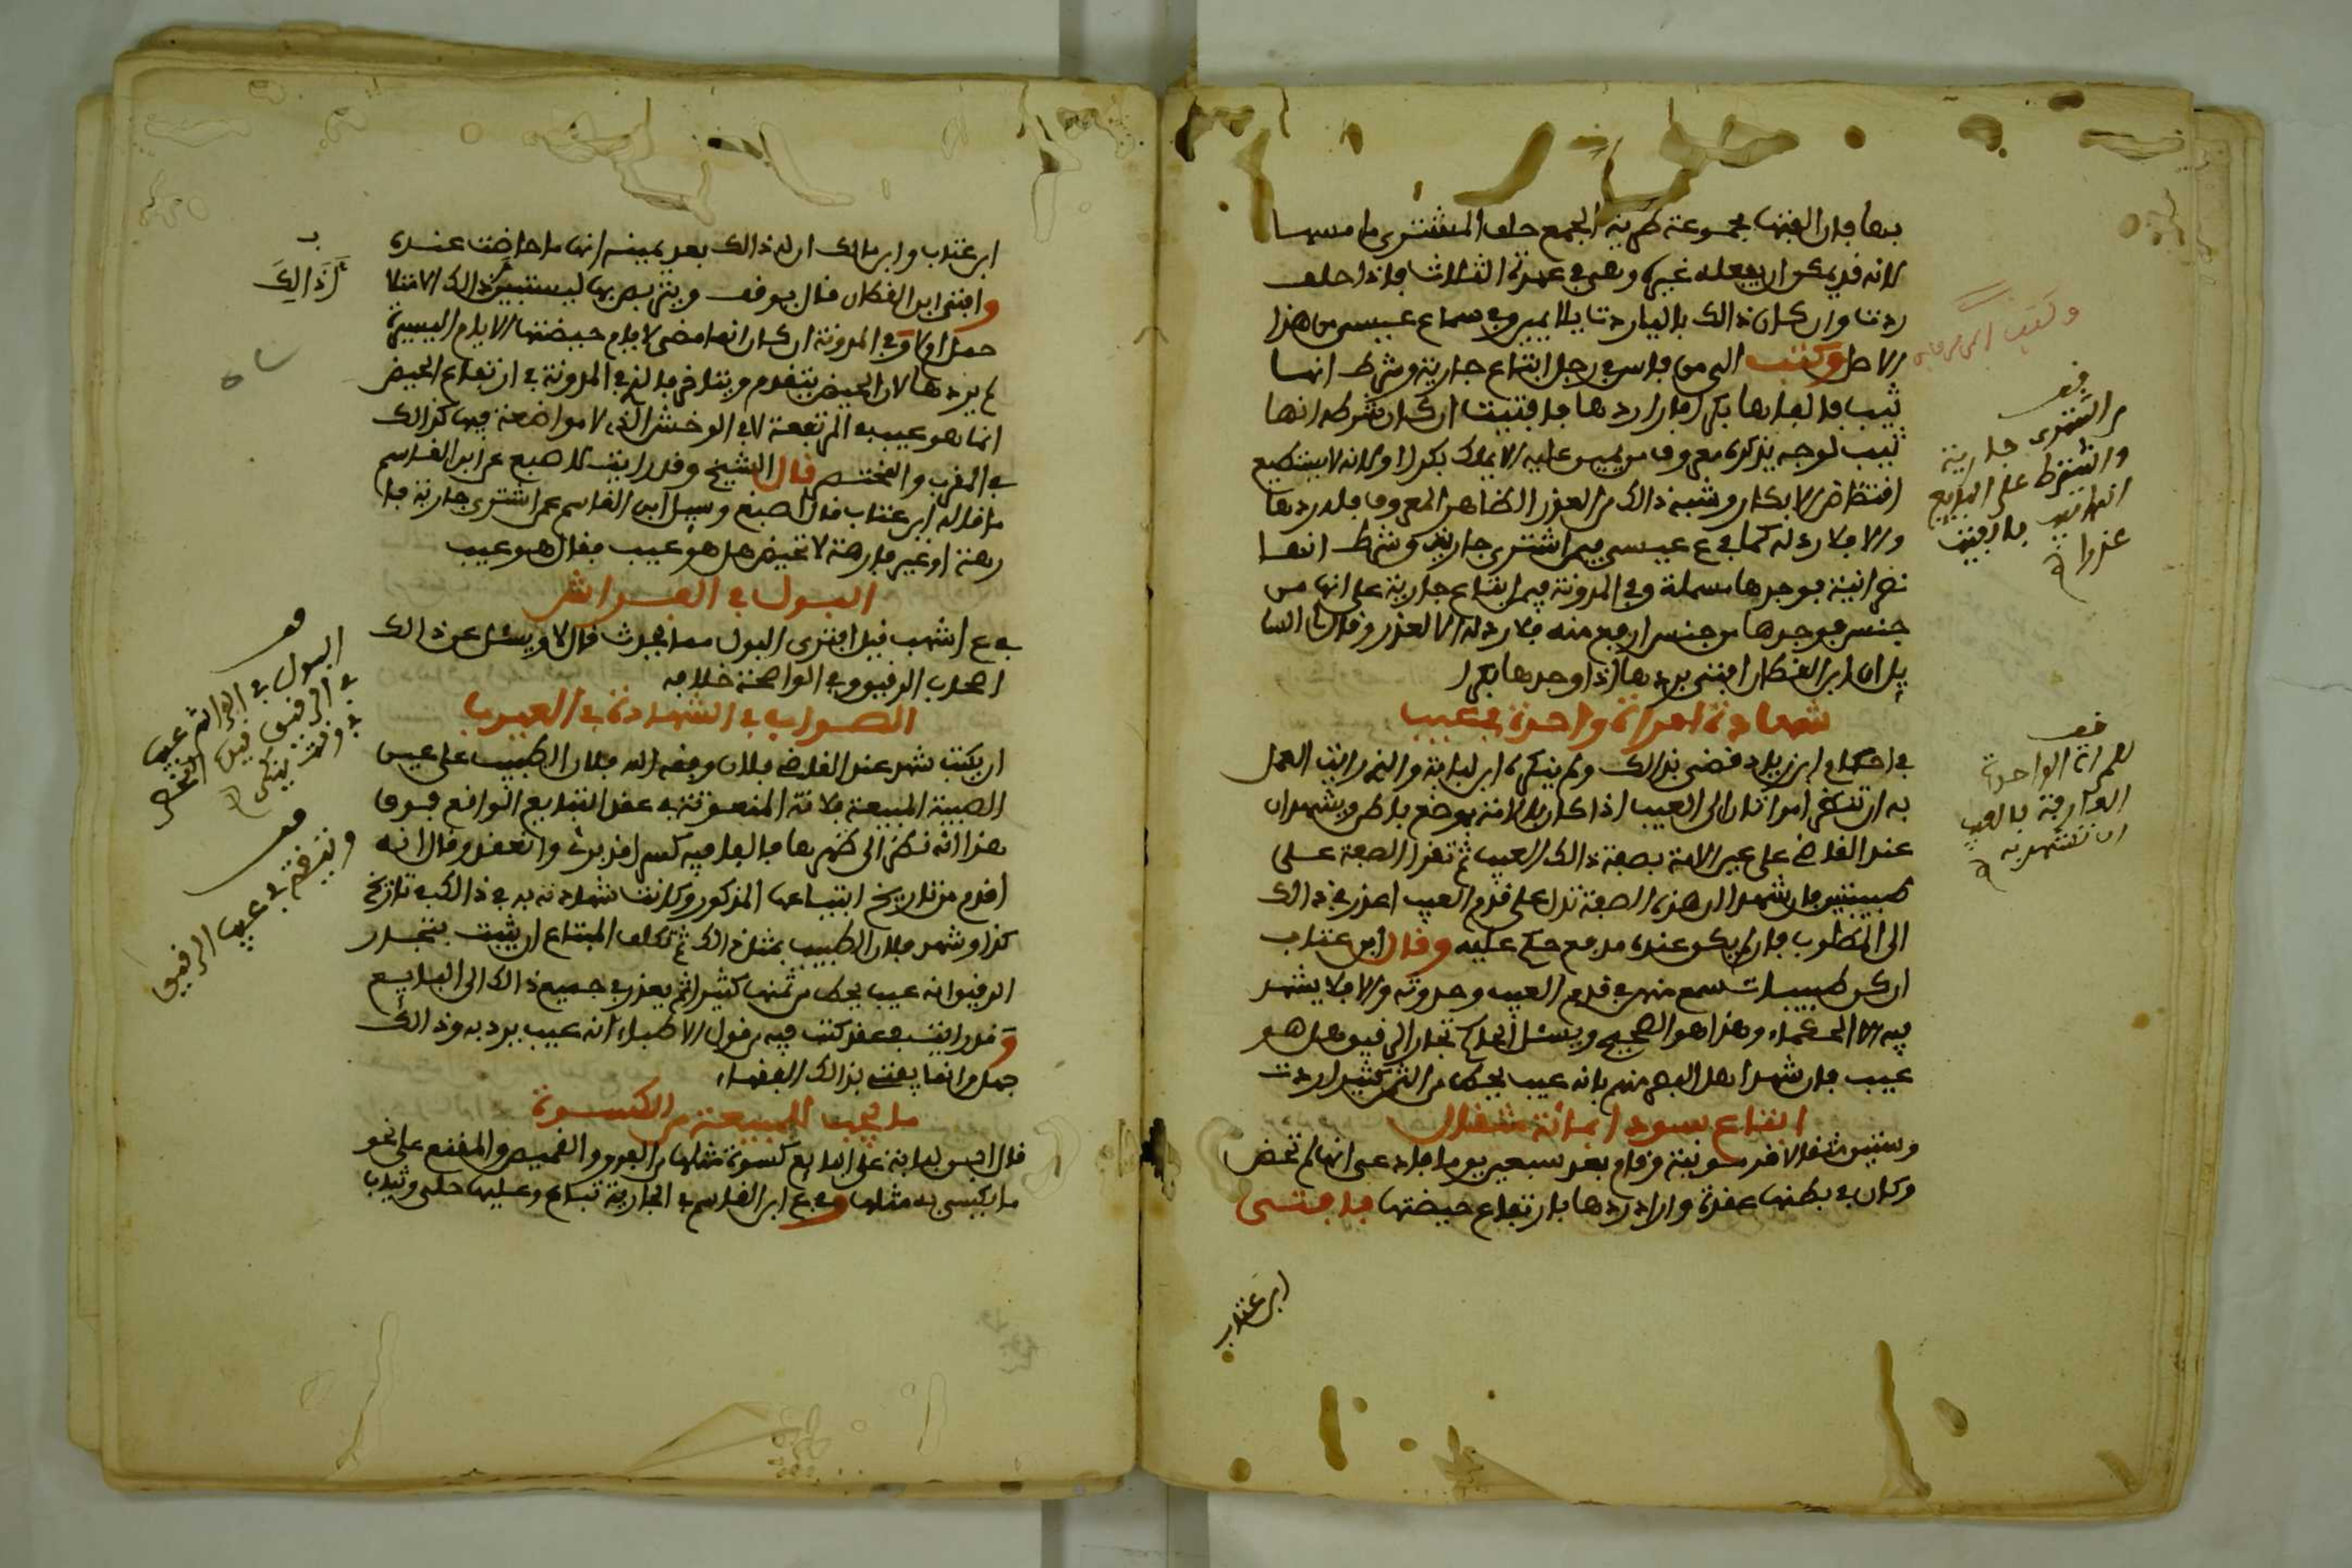 بها فإن الفتها مجموعة طرية الجمع حلف المشتري ما مسها
لانه قد يمكن ان يفعله غيره وهي في عهدة الثلاث فاذا حلف
ردت وان كان ذالك باليا ردت بلا يمين وفي سماع عيسى من هذا
الاصل وكتب الي من فاس في رجل ابتاع جارية وشرط انها
ثيب فالفاها بكرا فاراد ردها فافتيت ان كان شرطه انها
ثيب لوجه يذكره معروف من يمين عليه الا يملك بكرا او لانه لا يستطيع
افتضاض الابكار وشبه ذالك من العذر الظاهر المعروف فله ردها
والا فلا رد له كما في ع عيسى فيمن اشترى جارية وشرط انها
نصرانية فوجدها مسلمة وفي المدونة فيمن ابتاع جارية على انها من
جنس فوجدها من جنس ارفع منه فلا رد له الا لعذر وقال لنا السا
يل ان ابن العطار افتى بردها اذا وجدها بكرا
شهادة امراة واحدة في عيب
في احكام ابن زياد قضى بذالك ولم ينكره ابن لبابة والذي رايت العمل
به ان تنظر امراتان الى العيب اذا كان بالامة بموضع باطن ويشهدان
عند القاضي على عين الامة بصفة ذالك العيب ثم تقرا الصفة على
طبيبين فان شهدا ان هذه الصفة تدل على قدم العيب اعذر في ذالك
الى المطلوب فان لم يكن عنده مدفع حكم عليه وقال ابن عتاب
ان كن طبيبات سمع منهن في قدم العيب وحدوثه والا فلا يشهد
فيه الا الحكماء وهذا هو الصحيح ويسئل الحاكم تجار الرقيق هل هو
عيب فان شهد اهل البصر منهم بانه عيب يحط من الثمن كثيرا ردت
ابتاع سوداء بمائة مثقال
وستين مثقالا قرمونية وقام بعد سبعين يوما فادعى انها لم تحض
وكان في بطنها عقدة واراد ردها بارتفاع حيضتها فافتى
ابن عتاب
وكتب الي من فاس
قف
من اشترى جارية
واشترط على البايع
انها ثيب فالفيت
عذراء
قف
للمراة الواحدة
العارفة بالعيب
ان تشهد به
ابن عتاب وابن مالك ان له ذالك بعد يمينه انها ما حاضت عنده
وافتى ابن القطان فقال يوقف ويتربص بها ليستبين ذالك لامتلا
حمل او لا وفي المدونة ان كان انما مضى لايام حيضتها الايام اليسيرة
لم يردها لان الحيض يتقدم ويتاخر قاله في المدونة في ارتفاع الحيض
انما هو عيب في المرتفعة لا في الوخش التي لا مواضعة فيها كذالك
في المغرب والمختصر قال الشيخ وقد رايت لاصبغ عن ابن القاسم
ما قاله ابن عتاب قال اصبغ وسيل ابن القاسم عمن اشترى جارية فا
رهة او غير فارهة لا تحيض هل هو عيب فقال هو عيب
البول في الفراش
في ع اشهب قيل افترى البول مما يحدث قال لا ويسئل عن ذالك
اصحاب الرقيق وفي الواضحة خلافه
الصواب في الشهادة في العيوب
ان يكتب شهد عند القاضي فلان وفقه الله فلان الطبيب على عين
الصبية المبيعة فلانة المنعوتة في عقد التبايع الواقع فوق
هذا انه نظر الى ظهرها فالفى فيه كسرا قد برئ وانعقد وقال انه
اقدم من تاريخ ابتياعها المذكور وكانت شهادته به في ذالك في تاريخ
كذا وشهد فلان الطبيب بمثل ذالك ثم تكلف المبتاع ان يثبت بتجار
الرقيق انه عيب يحط من ثمنها كثيرا ثم يعذر في جميع ذالك الى البايع
وقد رايت في عقد كتب فيه من قول الاطباء انه عيب يرد به وذالك
جهل وانما يفتي بذالك الفقهاء
ما يجب للمبيعة من الكسوة
قال ابن لبابة على البايع كسوة مثلها من الفرو والقميص والمقنع على نحو
ما يكسى به مثلها وفي ع ابن القاسم في الجارية تباع وعليها حلي وثياب
ب
ان ذالك
قف
البول في الفراش عيب
في الرقيق
قف
وثيقة في عيب الرقيق